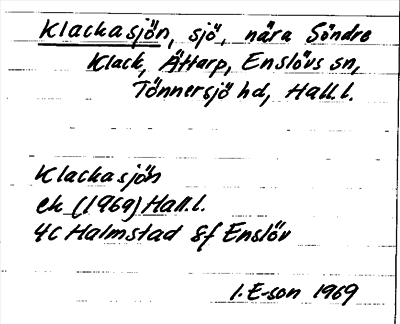 Klackasjön, sjö, nära Söndre
Klack, ÄHarp, Enslövs sn,
Tönnersjö hd, Hall.
Klackasjön
ek (1969) Hall.
4C Halmstad 8f Enslöv
I. E-son 1969